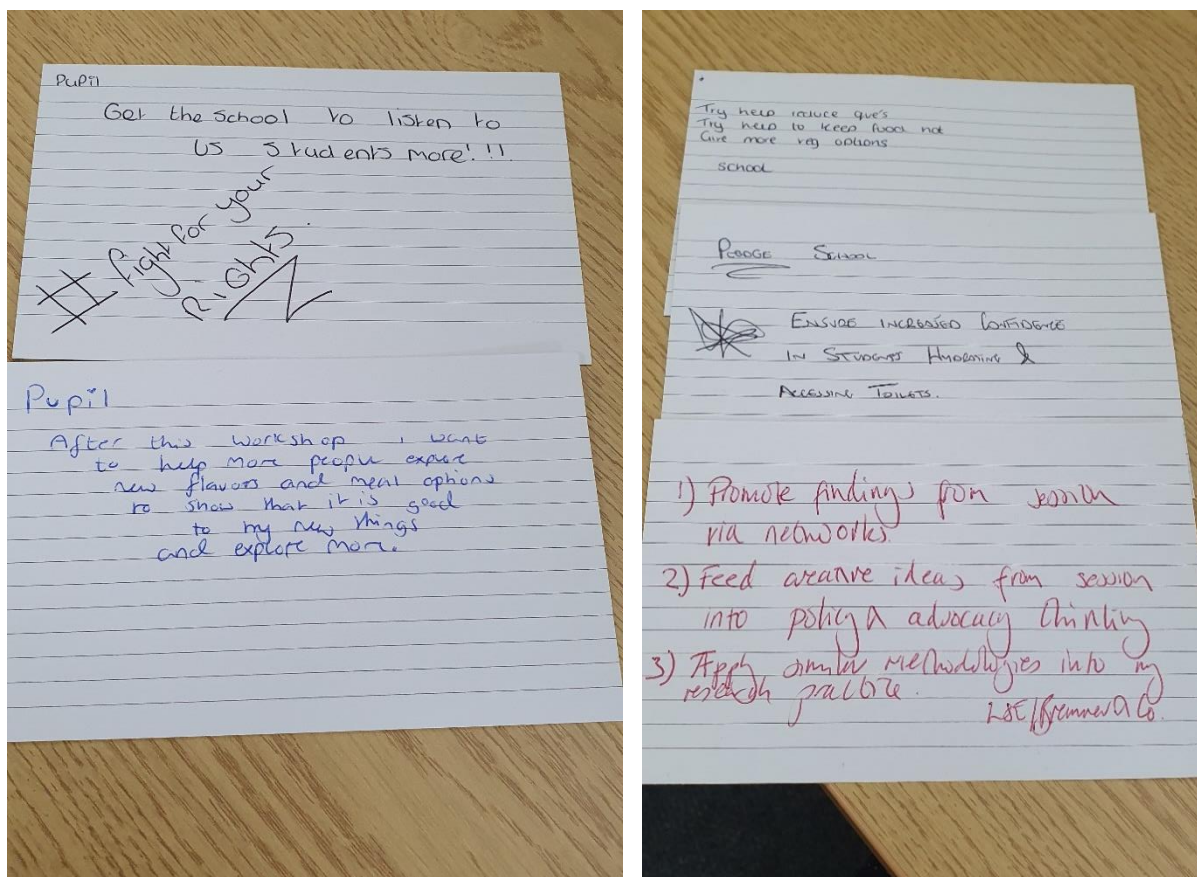 Pupil
Get the school to listen to
us students more!!!
# fight for your
Rights.
Pupil
After this workshop i want
to help more people expore
new flavors and meal options
to show that it is good
to try new things
and explore more.
Try help reduce que's
Try help to keep food hot
Give more veg options
school
PLEDGE SCHOOL
ENSURE INCREASED CONFIDENCE
IN STUDENTS HYDRATING &
ACCESSING TOILETS.
1) Promote findings from session
via networks.
2) Feed creative ideas from session
into policy & advocacy thinking
3) Apply similar methodologies into my
research practice.
LSE/Bremner & Co.